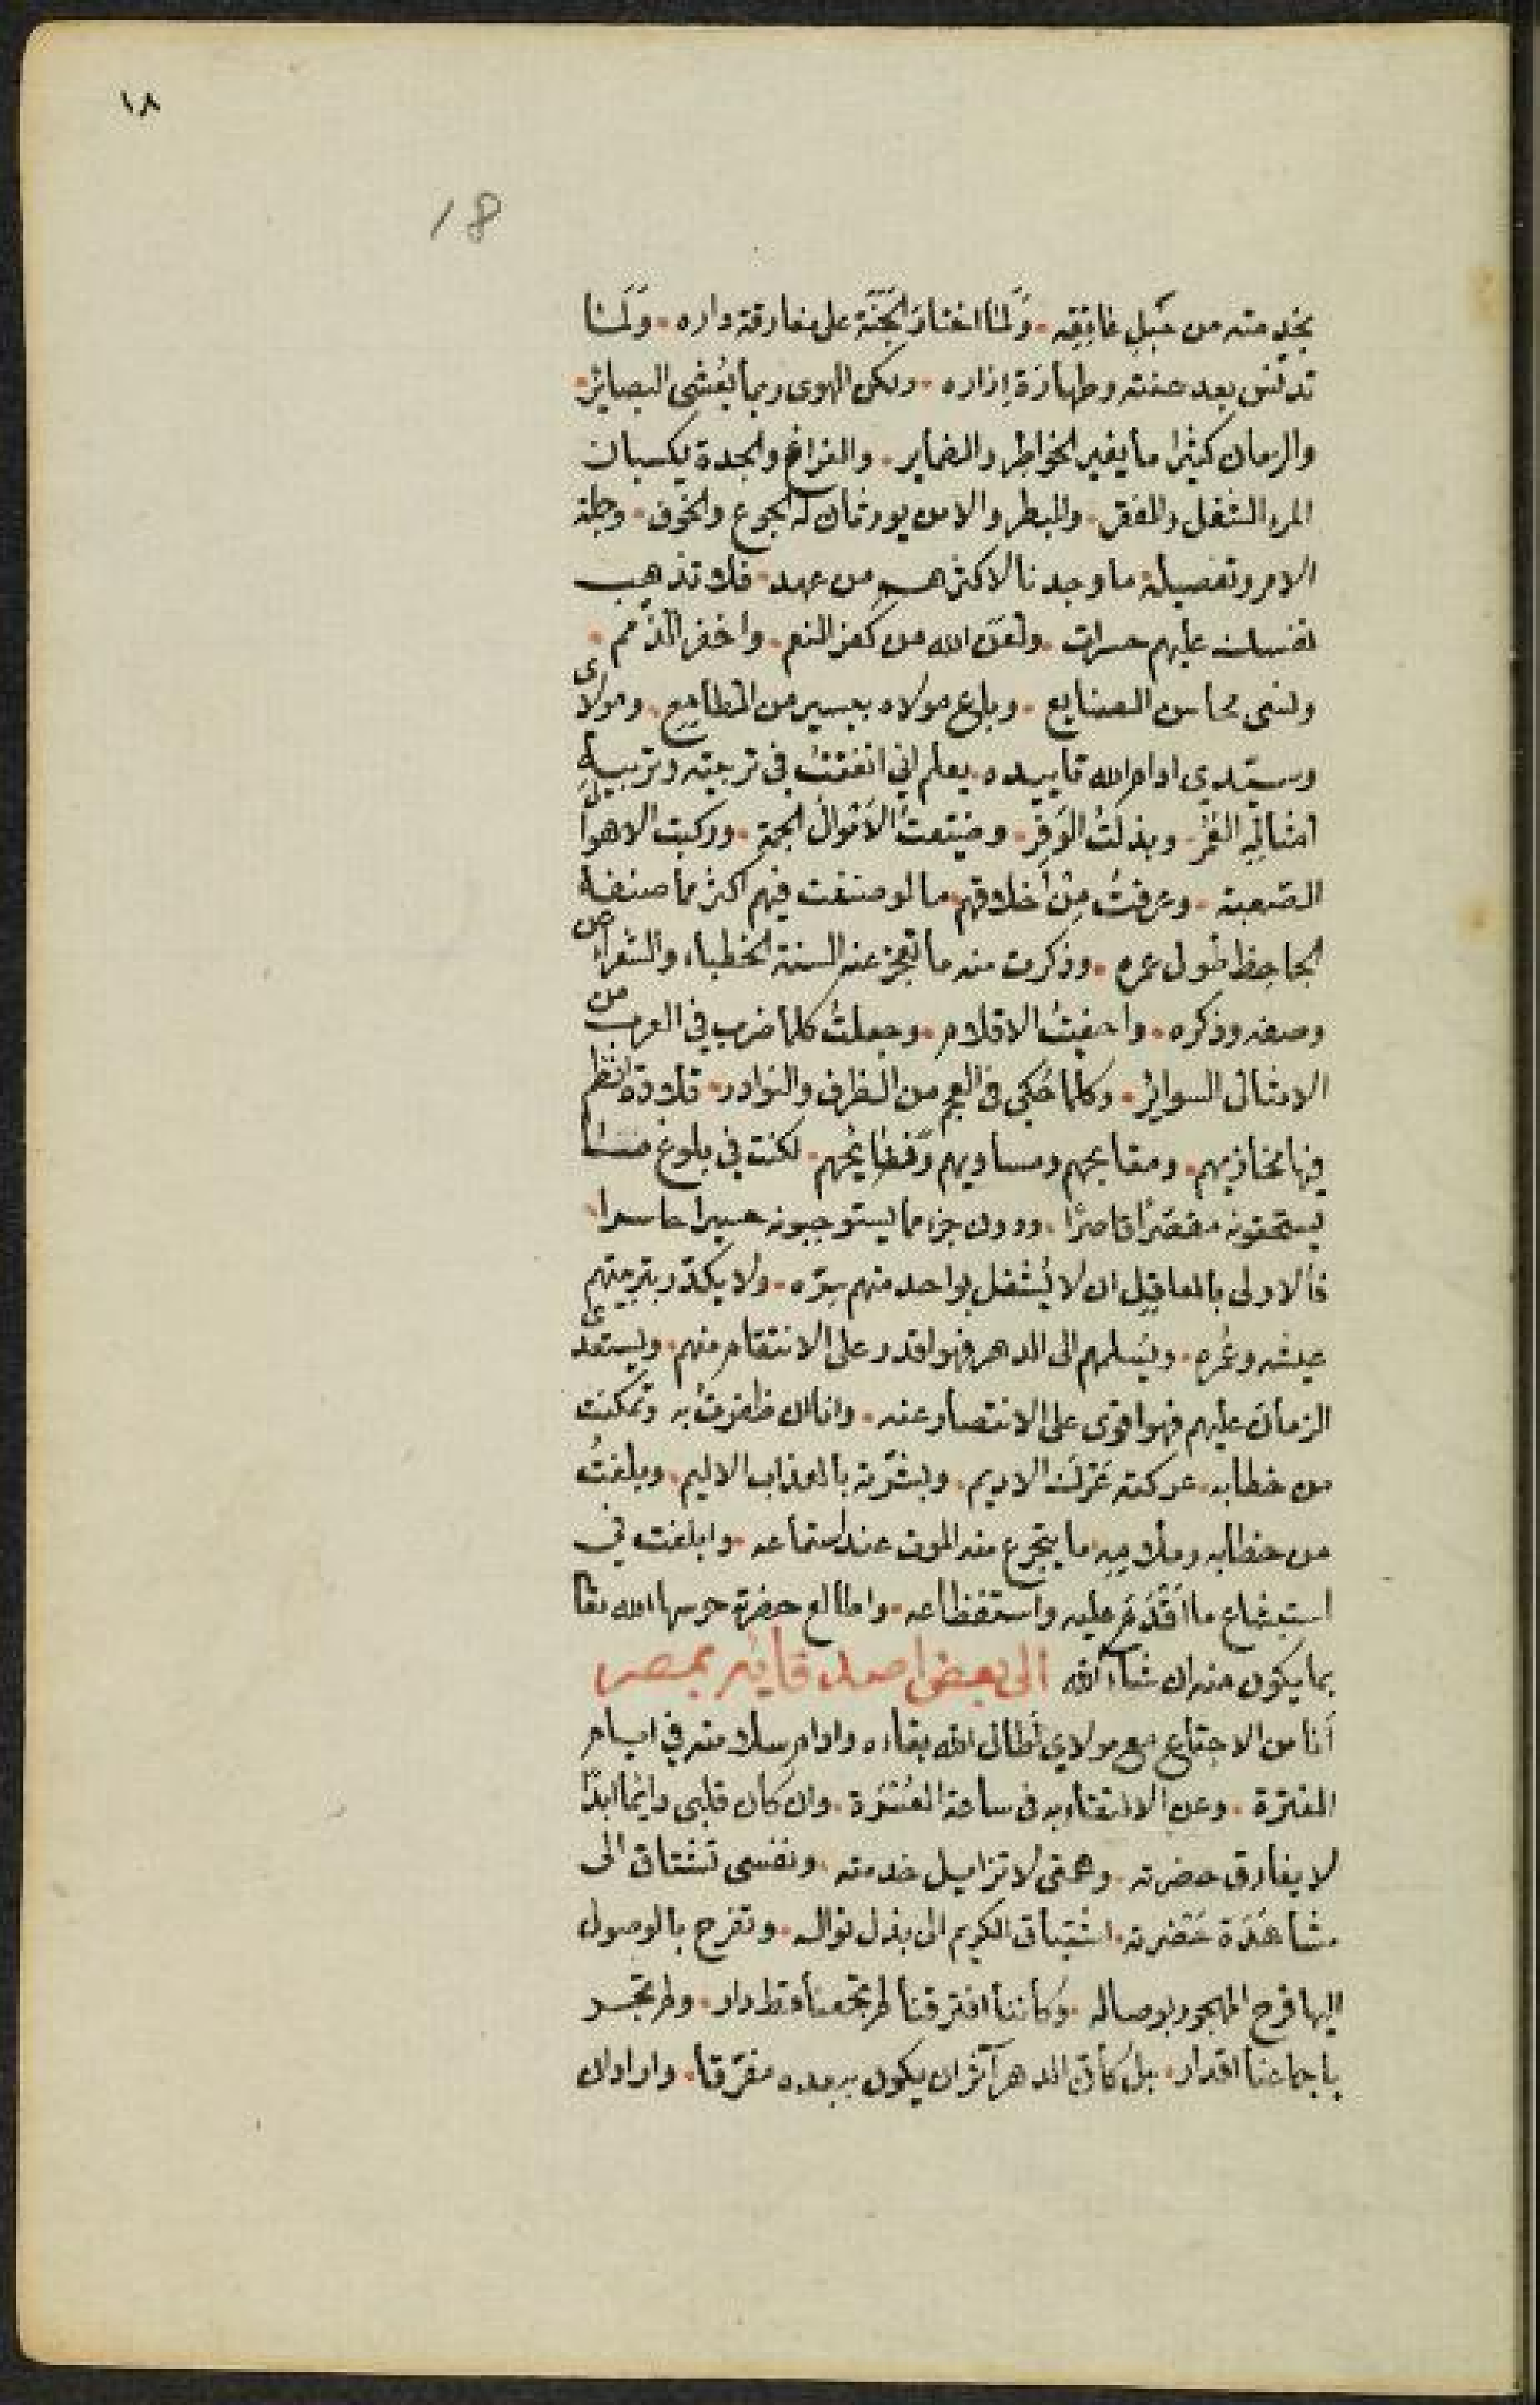 ١٨
18
بخدمته من حبل عاتقه . ولما اختار الجنة على مفارقة داره . ولما
تدنس بعد عفته وطهارة إزاره . ولكن الهوى ربما يغشى البصائر .
والزمان كثيرا ما يغير الخواطر والضماير . والفراغ والجدة يكسبان
المرء الشغل والفقر . والبطر والامن يورثان له الجوع والخوف . وجملة
الامر وتفصيله ما وجدنا لاكثرهم من عهد . فلا تذهب
نفسك عليهم حسرات . ولعن الله من كفر النعم . واخفر الذمم .
ونسى محاسن الصنايع . وباع مولاه بيسير من المطامع . ومولاى
وسيدي ادام الله تاييده . يعلم اني انفقت في تربيته وتربية
امثاله العمر . وبذلت الوفر . وضيعت الاموال الجمة . وركبت الاهوال
الصعبة . وعرفت من اخلاقهم ما لو صنفت فيهم اكثر مما صنفه
الجاحظ طول عمره . وذكرت منه ما تعجز عنه السنة الخطباء والشعراء عن
وصفه وذكره . واحفيت الاقلام . وجعلت كلما ضرب في العرب من
الامثال السوائر . وكلما حكي في العجم من الطرف والنوادر . قلادة انظم
فيها مخازيهم . ومقابحهم ومساويهم وفظايحهم . لكنت في بلوغ ما
يستحقونه مقصرا قاصرا . ودون جزء مما يستوجبونه حسيرا حاسرا .
فالاولى بالعاقل ان لا يشغل بواحد منهم سره . ولا يكدر بتربيتهم
عيشه وعمره . ويسلمهم الى الدهر فهو اقدر على الانتقام منهم . ويستعدى
الزمان عليهم فهو اقوى على الانتصار عنه . وانا ان ظفرت به وتمكنت
من خطابه . عركته عرك الاديم . وبشرته بالعذاب الاليم . وبلغت
من خطابه وملامه ما يتجرع منه الموت عند استماعه . وابلغت في
استبشاع ما اقدم عليه واستفظاعه . واطالع حضرة حرسها الله تعا
بما يكون منه ان شاء الله الى بعض اصدقائه بمصر
أنا من الاجتماع مع مولاي اطال الله بقاءه وادام سلامته في ايام
الفترة . وعن الالتقاء به في ساعة العسرة . وان كان قلبى دايما ابدا
لا يفارق حضرته . وهمتى لا تزايل خدمته . ونفسى تشتاق الى
مشاهدة حضرته . اشتياق الكريم الى بذل نواله . وتفرح بالوصول
اليها فرح المهجور بوصاله . وكأننا افترقنا لم تجمعنا قط دار . ولم تجر
باجماعنا اقدار . بل كأن الدهر آثر ان يكون بيده مفرقا . واراد ان